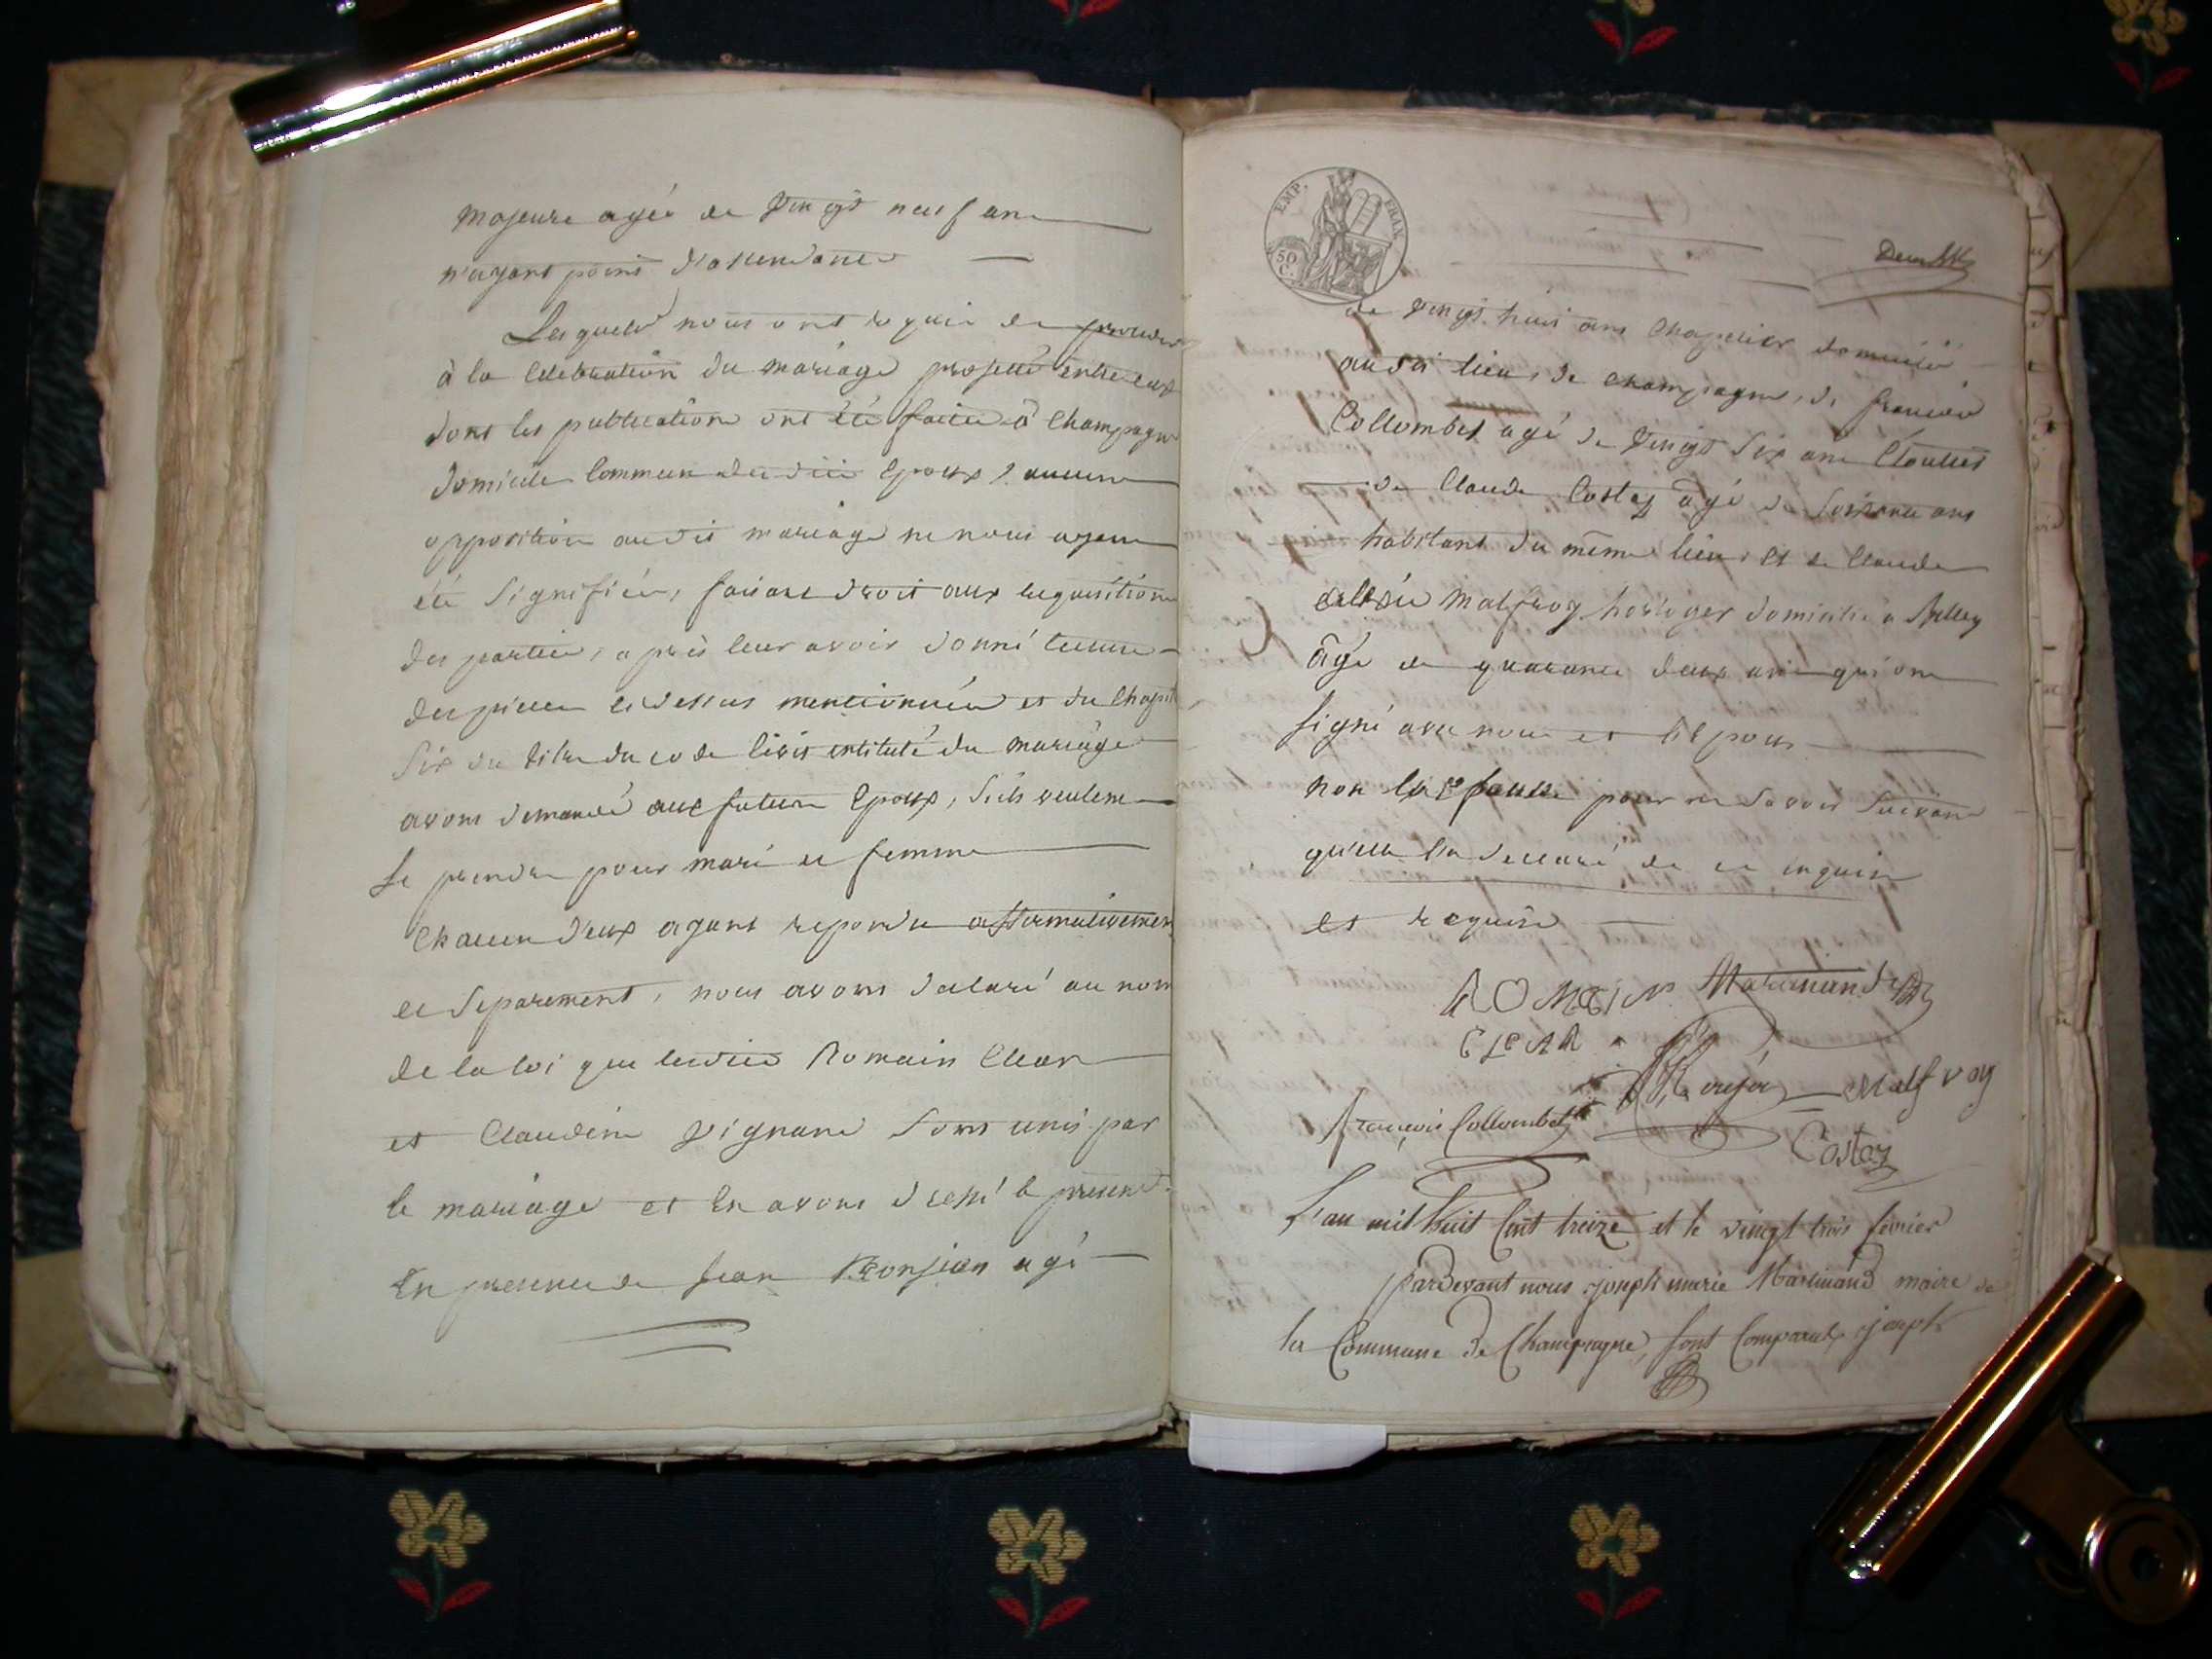 majeure agée de vingt neuf ans
n'ayant point d'assendance
Lesquels nous ont requis de proceder
à la Celebration du mariage projetté entre eux
dont les publications ont été faites à Champagne
domicile Commun des dits Epoux, aucune
opposition audit mariage ne nous ayant
été signifiée, faisant droit aux requisitions
des parties, après leur avoir donné lecture
des pieces ci dessus mentionnées et du Chapit
six du titre du code Civil intitulé du mariage
avons demandé aux futurs Epoux, s'ils veulent
se prendre pour mari et femme
Chacun d'eux ayant repondu affirmativement
et separement, nous avons declaré au nom
de la loi que lesdits Romain Clear
et Claudine vignand sont unis par
le mariage et En avons dressé le present
En presence de Jean agé
EMP. FRAN.
50 C.
de vingt huit ans Chapelier domicilié
audit lieu de champagne, de francois
Collombet agé de vingt six ans Cloutier
de Claude Costaz agé de soixante ans
habitant du même lieu et de Claude
Malfroy horloger domicilié a
âgé de quarante deux ans qui ont
signé avec nous et l'Epoux
non la pour ne savoir suivant
qu'elle l'a declaré de ce enquise
et requise
ROMAIN Martinand
CLEAR Malfroy
françois Collombet
Costaz
L'an mil huit Cent treize et le vingt trois fevrier
pardevant nous joseph marie Martinand maire de
la Commune de Champagne, sont Comparus joseph